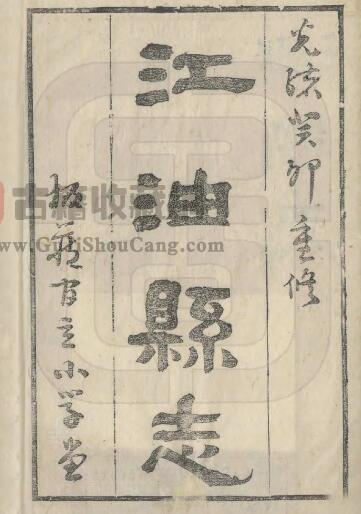 光緒癸卯重修
江油縣志
板藏官立小學堂
古籍收藏
www.GuJiShouCang.com